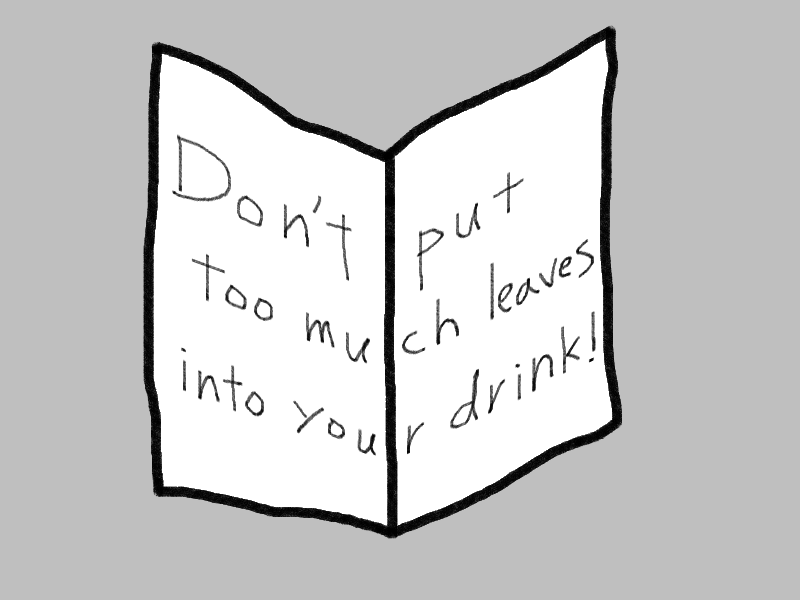 Don't put
too much leaves
into your drink!